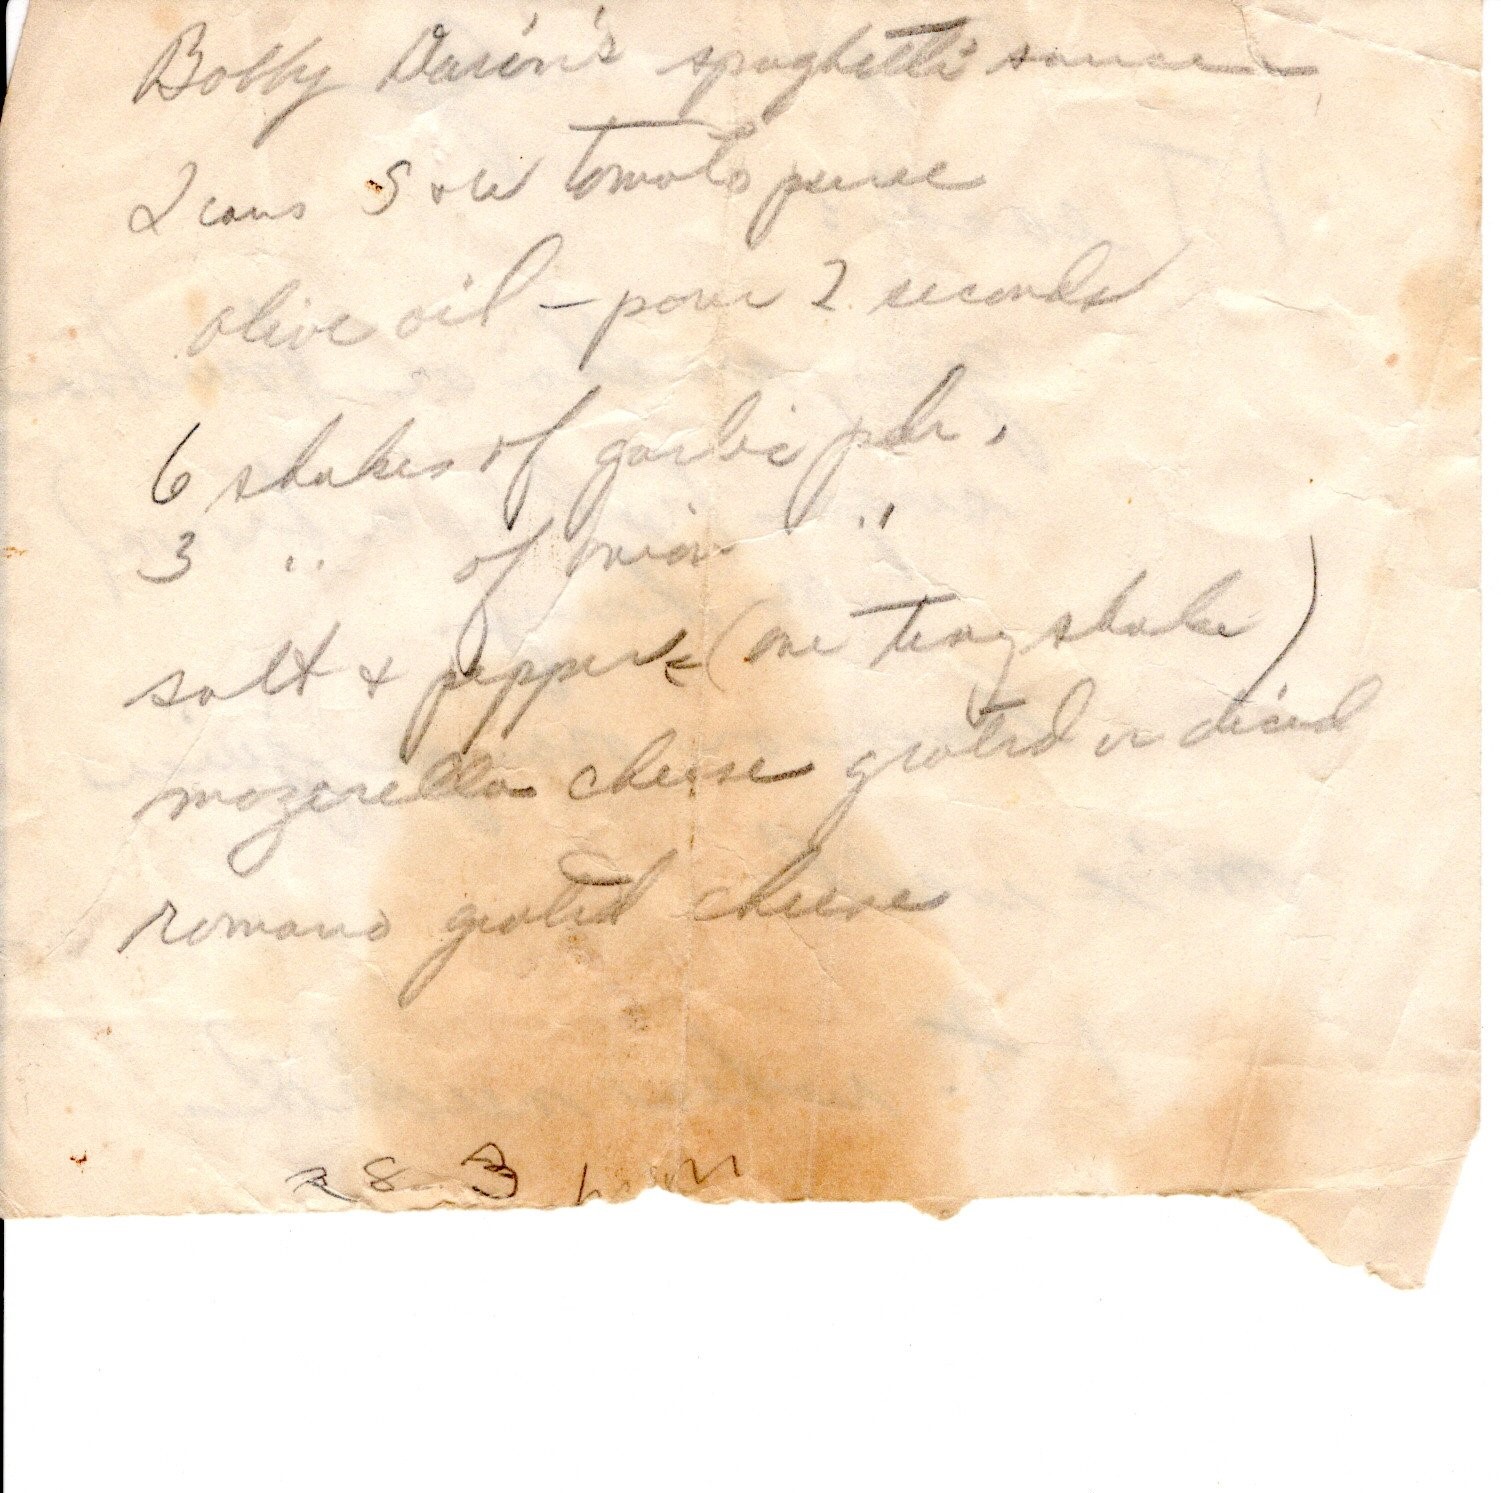 Bobby Darin's spaghetti sauce
2 cans S & W tomato puree
olive oil – pour 2 seconds
6 shakes of garlic pdr.
3 " of onion "
salt & pepper (one tiny shake)
mozerella cheese grated or diced
romano grated cheese